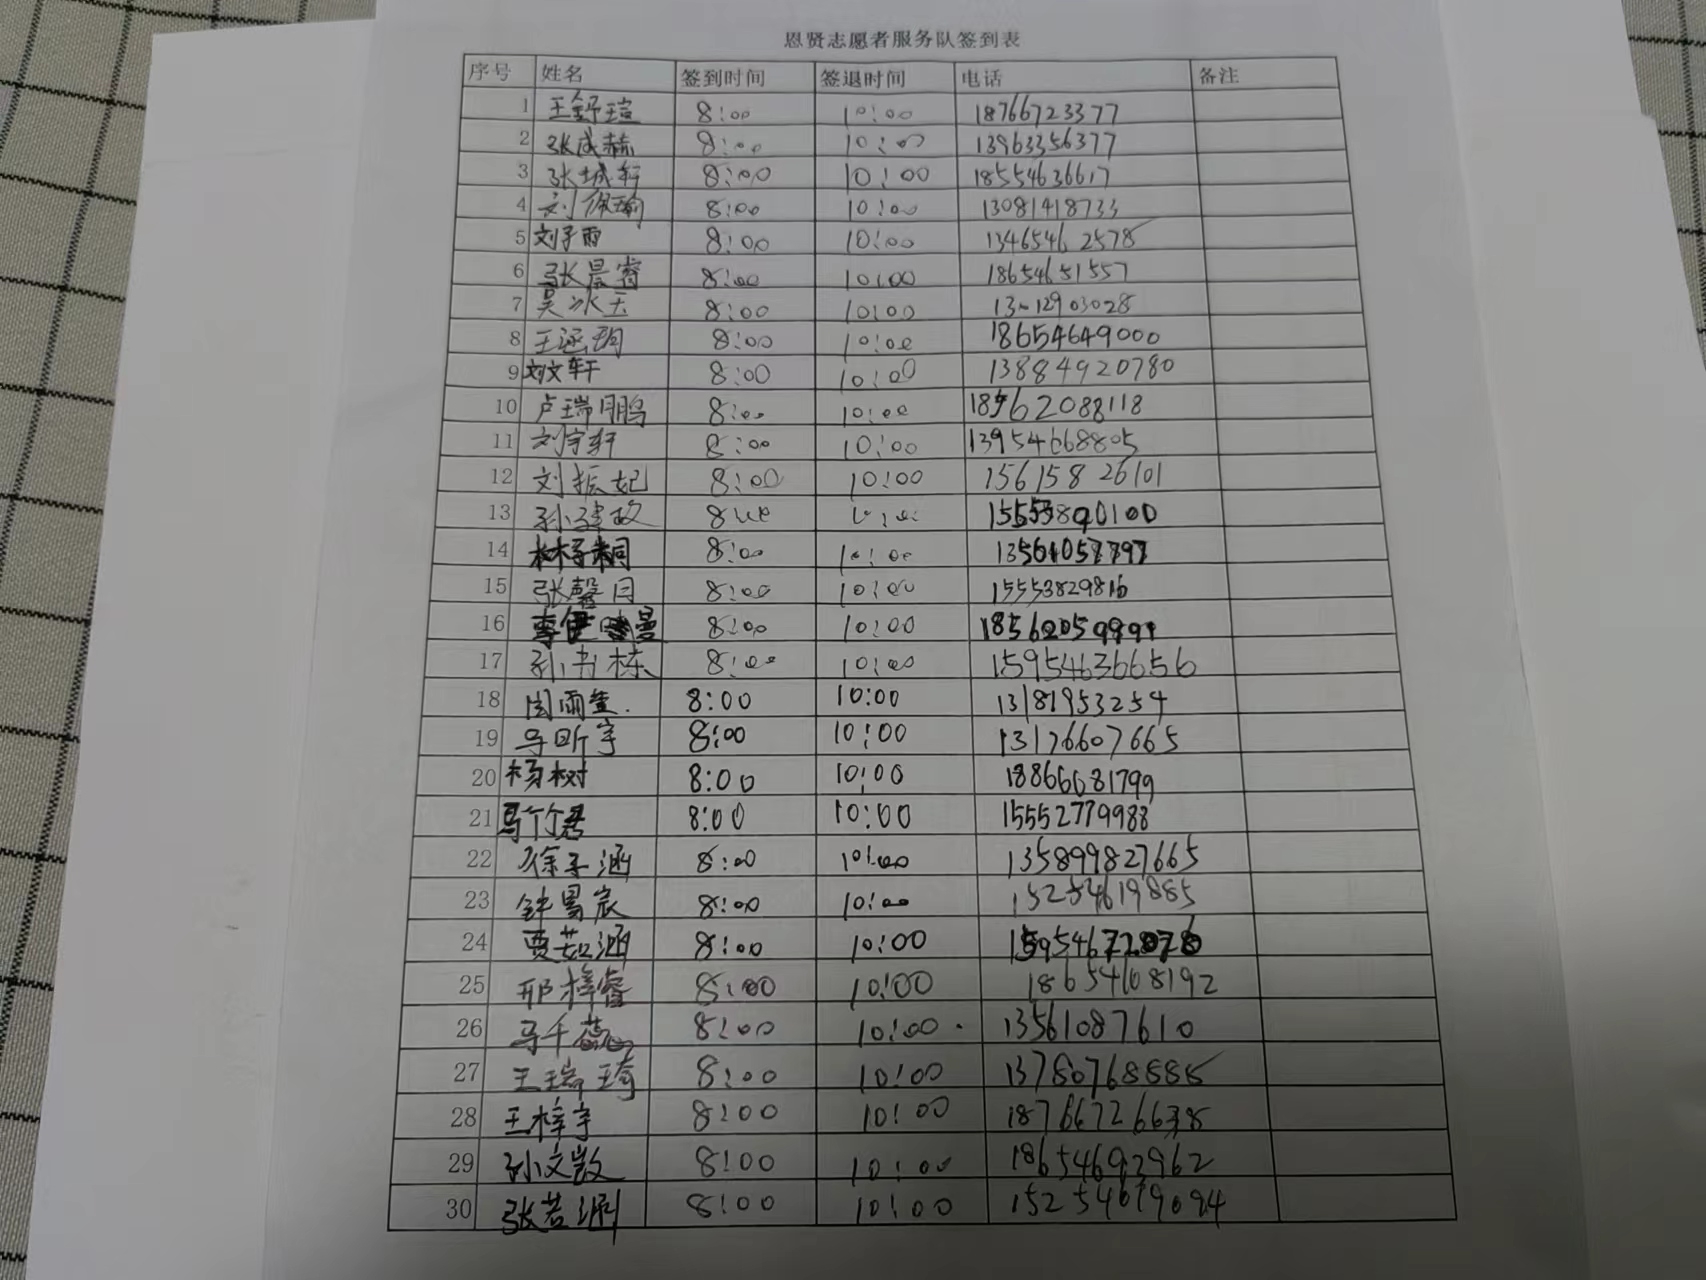 恩贤志愿者服务队签到表
序号 姓名 签到时间 签退时间 电话 备注
1 王舒瑄 8:00 10:00 18766723377
2 张成赫 8:00 10:00 13963356377
3 张城轩 8:00 10:00 18554636617
4 刘保瑜 8:00 10:00 13081418733
5 刘子雨 8:00 10:00 13465462578
6 张晨睿 8:00 10:00 18654651557
7 吴冰玉 8:00 10:00 13012903028
8 王涵玥 8:00 10:00 18654649000
9 刘文轩 8:00 10:00 13884920780
10 卢瑞鹏 8:00 10:00 18562088118
11 刘宇轩 8:00 10:00 13954668805
12 刘振妃 8:00 10:00 15615826101
13 孙建政 8:00 10:00 15553890100
14 林梓桐 8:00 10:00
15 张馨月 8:00 10:00 15553829816
16 李伊曼 8:00 10:00
17 孙书栋 8:00 10:00 15954636656
18 闫雨萱. 8:00 10:00 13181953254
19 马昕宇 8:00 10:00 13176607665
20 杨树 8:00 10:00 18866681799
21 马竹君 8:00 10:00 15552779988
22 徐子涵 8:00 10:00 135899827665
23 钟昜宸 8:00 10:00 15254619885
24 贾茹涵 8:00 10:00
25 邢梓睿 8:00 10:00 18654608192
26 马千蕊 8:00 10:00 13561087610
27 王瑞琦 8:00 10:00 13780768885
28 王梓宇 8:00 10:00 18766726638
29 孙文散 8:00 10:00 18654692962
30 张若渊 8:00 10:00 15254679094